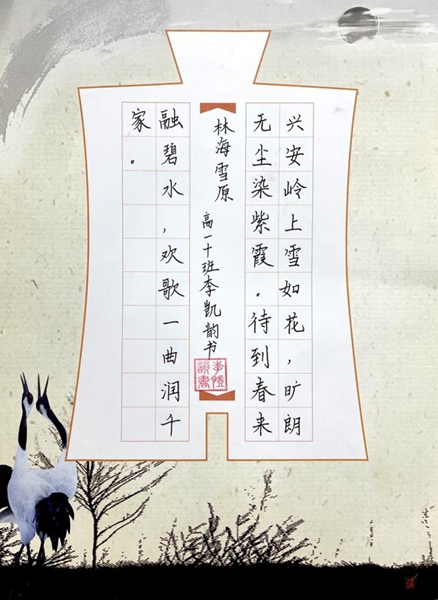 兴安岭上雪如花，旷朗
无尘染紫霞。待到春来
林海雪原
高一十班李凯韵书
融碧水，欢歌一曲润千
家。